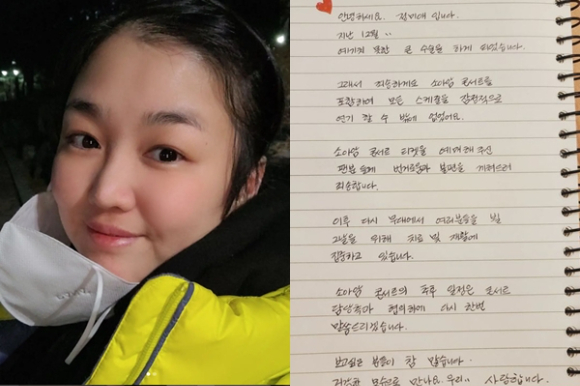 안녕하세요. 정미애 입니다.
지난 12월..
예기치 못한 큰 수술을 하게 되었습니다.
그래서 죄송하게도 소아암 콘서트를
포함하여 모든 스케줄을 잠정적으로
연기 할 수 밖에 없었어요.
소아암 콘서트 티켓을 예매해 주신
팬분들께 번거로움과 불편을 끼쳐드려
죄송합니다.
이후 다시 무대에서 여러분들을 뵐
그날을 위해 치료 및 재활에
집중하고 있습니다.
소아암 콘서트의 추후 일정은 콘서트
담당측과 협의하에 다시 한번
말씀드리겠습니다.
보고싶은 분들이 참 많습니다.
건강한 모습으로 만나요 우리.. 사랑합니다.